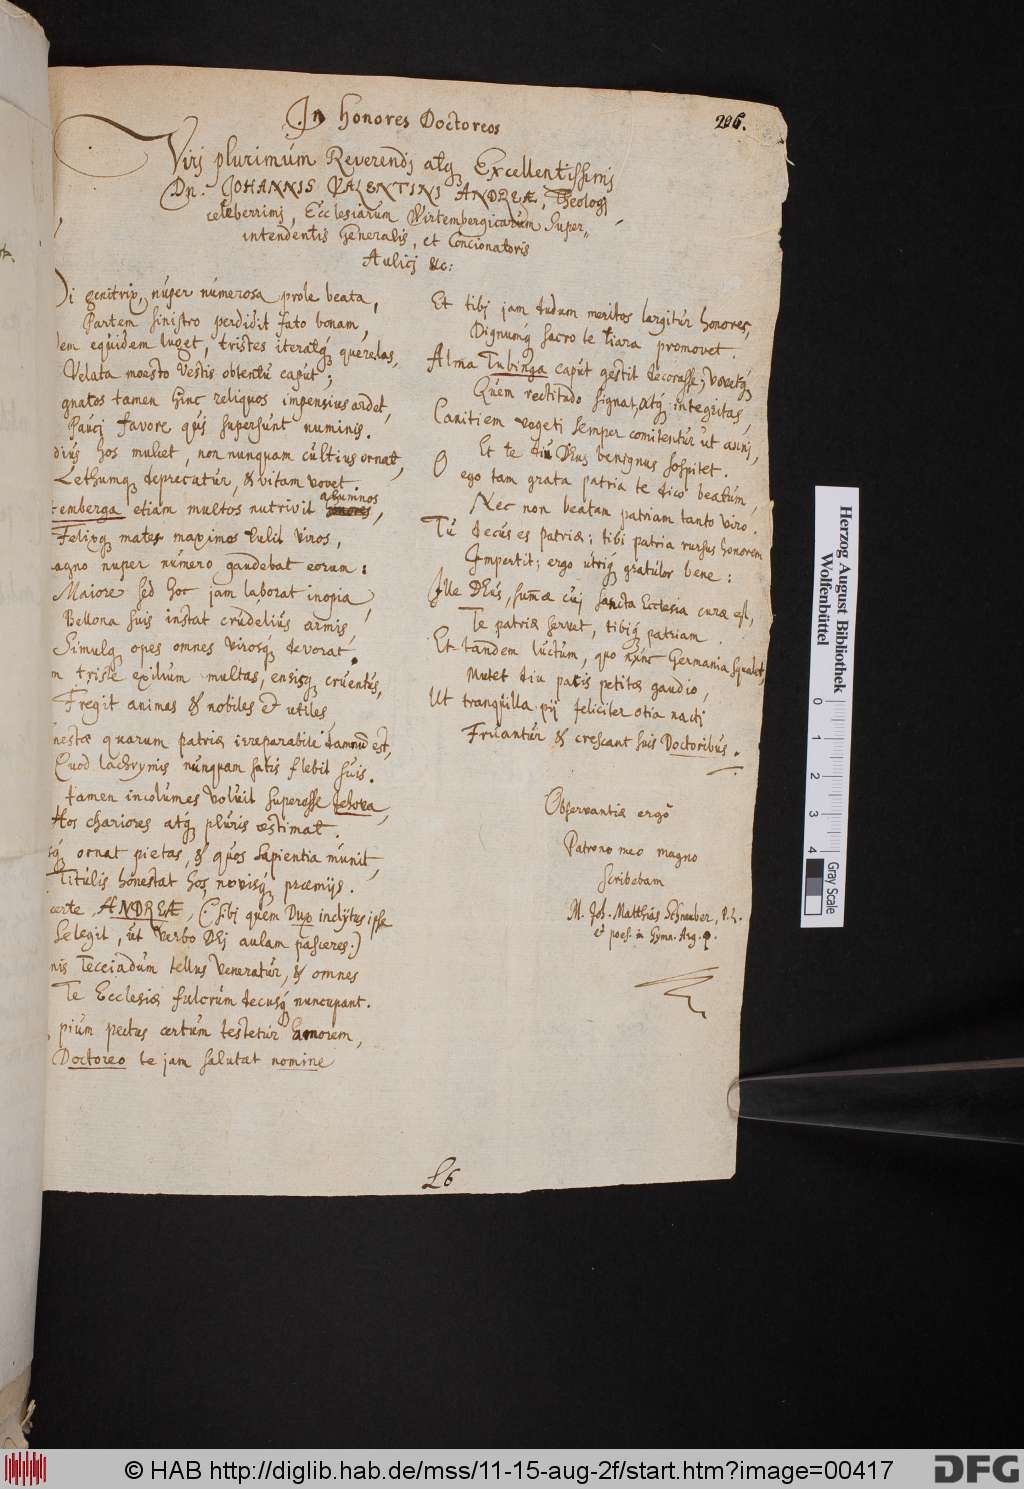 206.
In Honores Doctoreos
Virj plurimùm Reverendj atq; Excellentissimj
Dn. JOHANNIS VALENTINJ ANDREÆ, Theologj
celeberrimj, Ecclesiarum Wirtembergicarùm Super-
intendentis Generalis, et Concionatoris
Aulicj &c:
genitrix, nùper nùmerosa prole beata,
Partem sinistro perdidit fato bonam,
equidem luget, tristes iteratq; querelas,
Velata moesto Vestis obtentù capùt;
gnatos tamen hinc reliquos impensiùs ardet,
Paùcj favore qùj supersùnt numinis.
hos mulcet, non nunquam cùltius ornat,
Lethumq; deprecatùr, & vitam vovet.
temberga etiam multos nutrivit alumnos,
Felixq; mater maximos tulit viros,
nuper nùmero gaudebat eorum:
Maiore sed hoc jam laborat inopia,
Bellona suis instat crùdeliùs armis,
Simulq; opes omnes virosq; devorat.
triste exilium multas, ensisq; crùentùs,
Fregit animas & nobiles & utiles,
quarum patriæ irreparabile damnùm est,
Quod lachrymis nùnquam satis flebit sùis.
tamen incolumes voluit superesse Jehova,
Hos chariores atq; plùris æstimat.
ornat pietas, & qùos sapientia mùnit,
Titùlis honestat hos novisq; præmijs.
certe ANDREÆ, (sibj quem Dux inclytus ipse
Selegit, ùt verbo Dej aulam pasceres.)
Tecciadùm tellus veneratùr, & omnes
Te Ecclesiæ fulcrùm decusq; nuncupant.
piùm pectus certùm testetùr amorem,
Doctoreo te jam salutat nomine
Et tibj jam dudum meritos largitùr honores,
Dignumq; sacro te tiara promovet.
Alma Tubinga capùt gestit decorasse, vovetq;
Qùem rectitùdo signat, atq; integritas,
Canitiem vegeti semper comitentùr ut annj,
Et te diù Deus benignus sospitet.
O ego tam grata patria te dico beatùm,
Nec non beatam patriam tanto viro.
Tù decùs es patriæ; tibi patria rursus honorem
Impertit; ergo ùtriq; gratùlor bene:
Ille Deùs, sum̃æ cuj sancta Ecclesia curæ est,
Te patriæ servet, tibiq; patriam.
Et tandem lùctùm, quo nùnc Germania squalet,
Mutet diu pacis petitæ gaudio,
Ut tranqùilla pij feliciter otia nactj
Frùantùr & crescant sùis Doctoribùs.
Observantiæ ergò
Patrono meo magno
scribebam
M. Joh. Matthias Schneuber, P. L.
& poes. in Gymn. Arg. p.
L6
Herzog August Bibliothek
Wolfenbüttel
0 1 2 3 4
Gray Scale
© HAB http://diglib.hab.de/mss/11-15-aug-2f/start.htm?image=00417
DFG